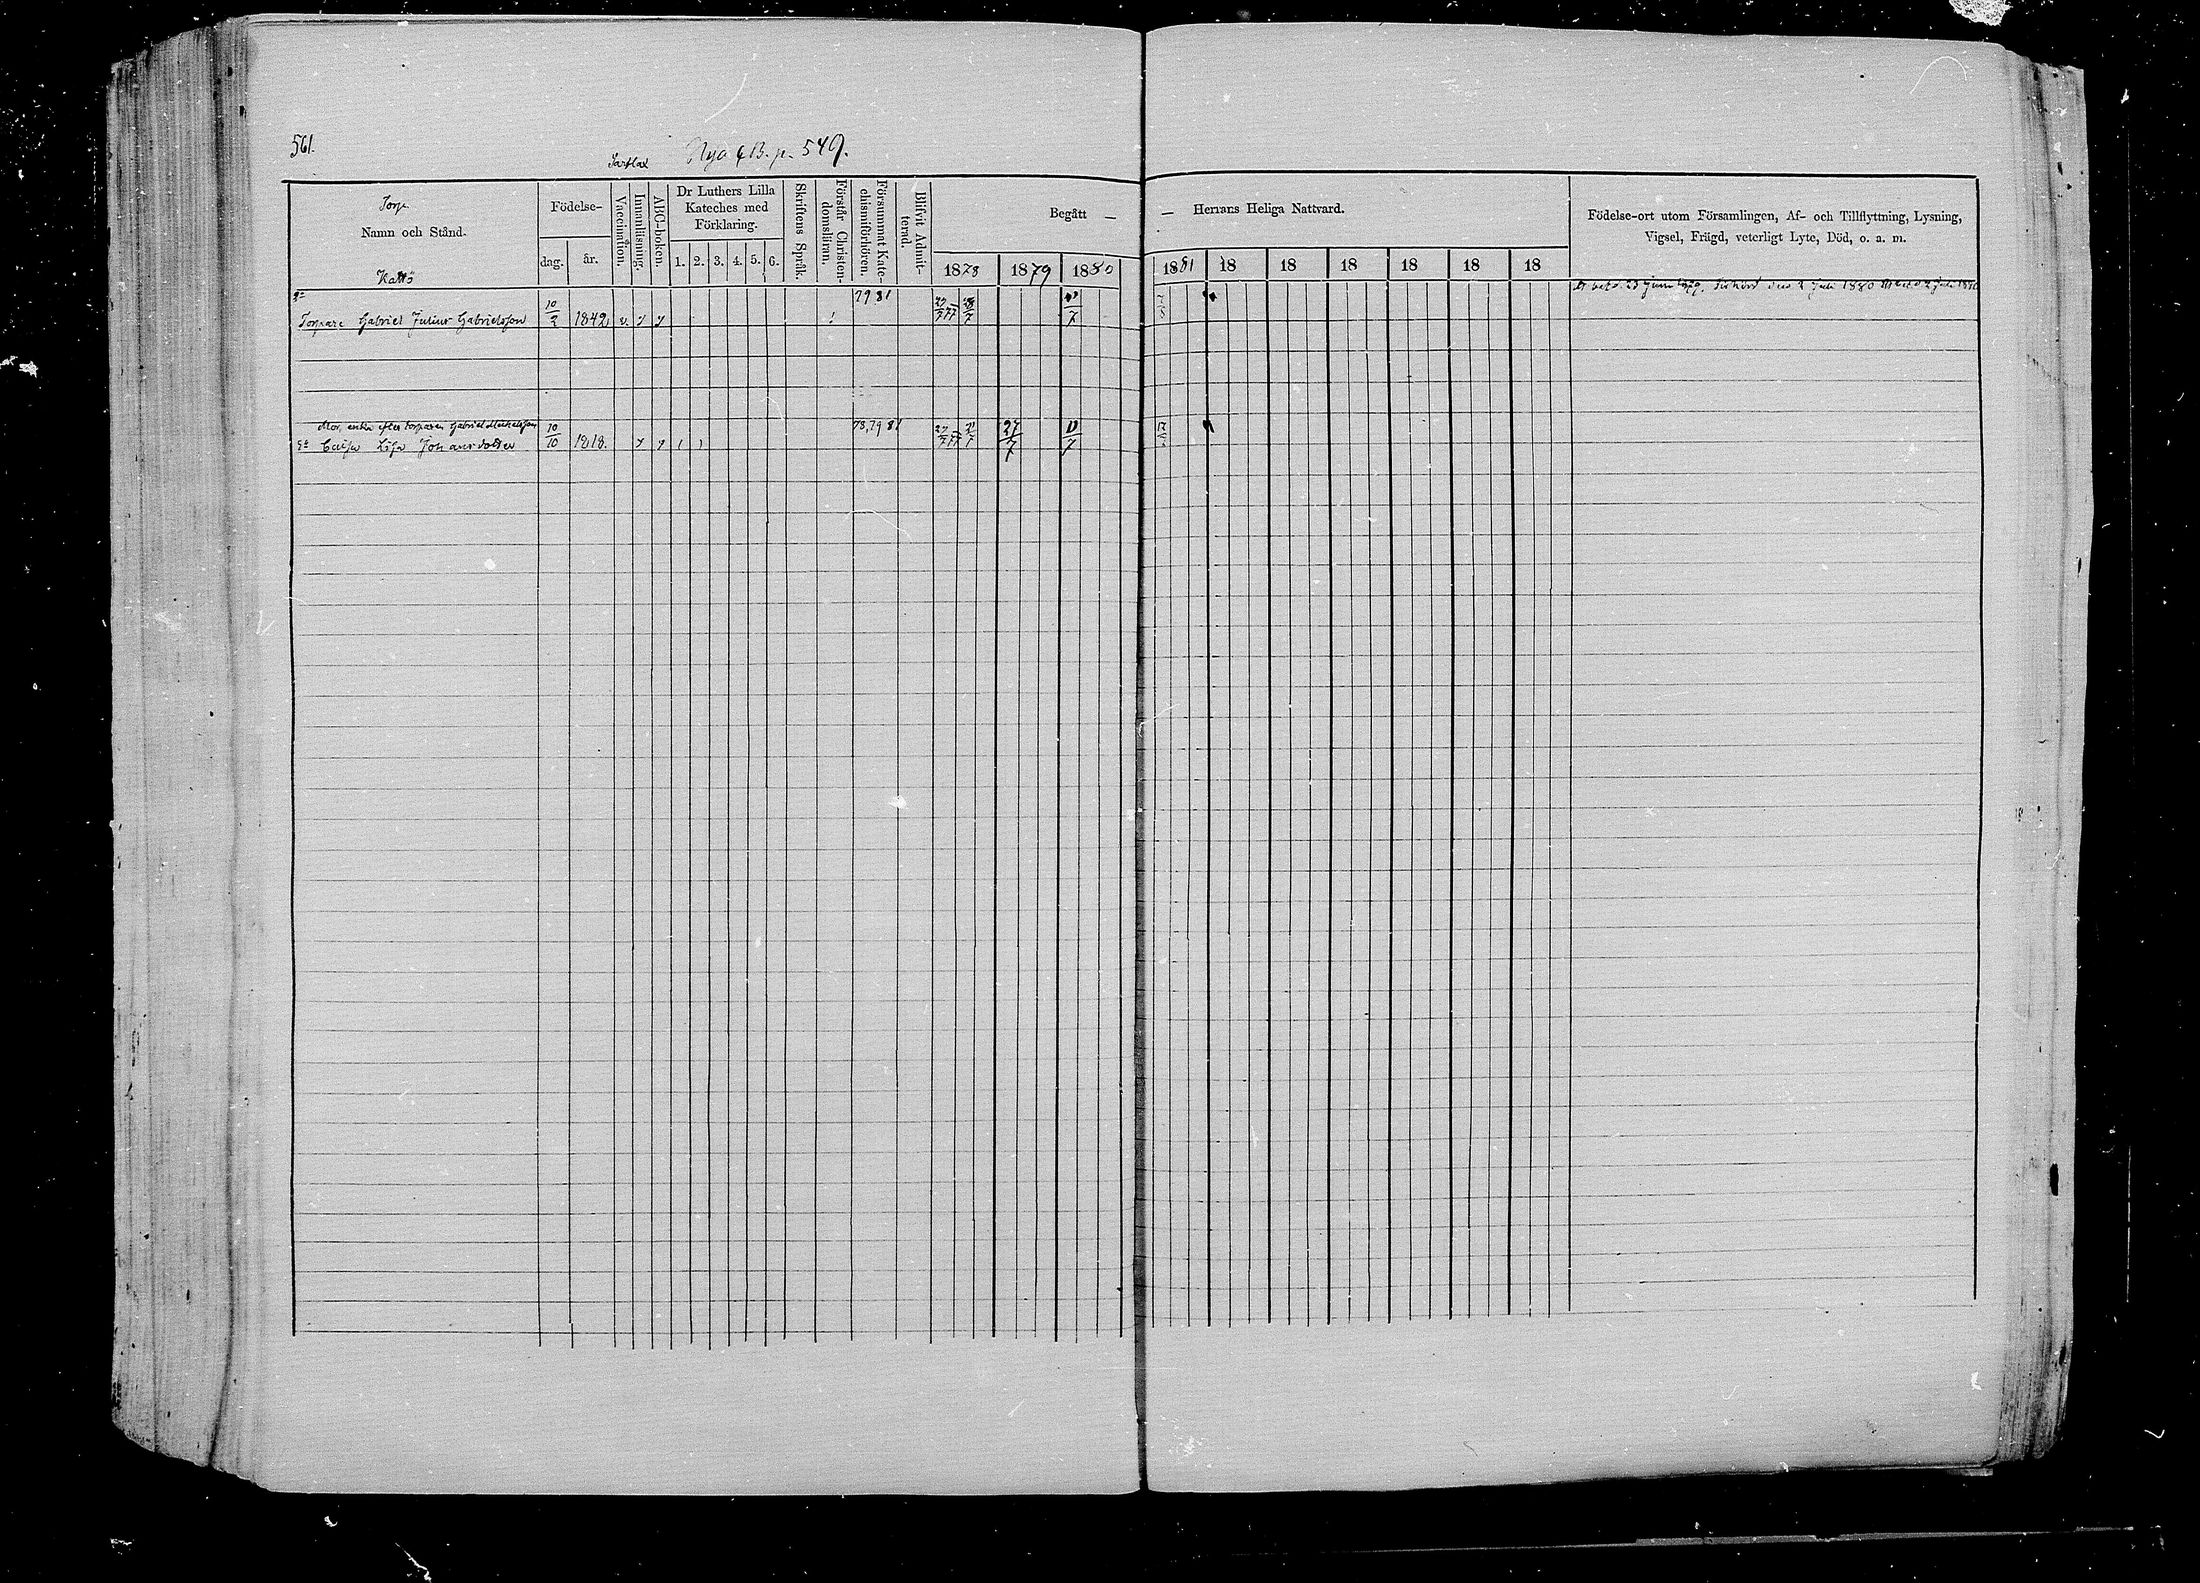 561.
Sarflax Nya CB. p. 549.
Torp.
Namn och Stånd.
Kattö
Födelse-
dag. år.
Vaccination.
Innanläsning.
ABC-boken.
Dr Luthers Lilla
Kateches med
Förklaring.
1. 2. 3. 4. 5. 6.
Skriftens Språk.
Förstår Christen-
domsläran.
Försummat Kate-
chismiförhören.
Blifvit Admit-
terad.
Begått —
1878 1879 1880
— Herrans Heliga Nattvard.
1881 18 18 18 18 18 18
Födelse-ort utom Församlingen, Af- och Tillflyttning, Lysning,
Vigsel, Frägd, veterligt Lyte, Död, o. a. m.
79 81
Torpare Gabriel Julius Gabrielsson 10/2 1842 v. y y
Mor, enka efter torparen Gabriel Michelsson 78, 79 81
Caisa Lisa Johansdotter 10/10 1818. y y 27/7